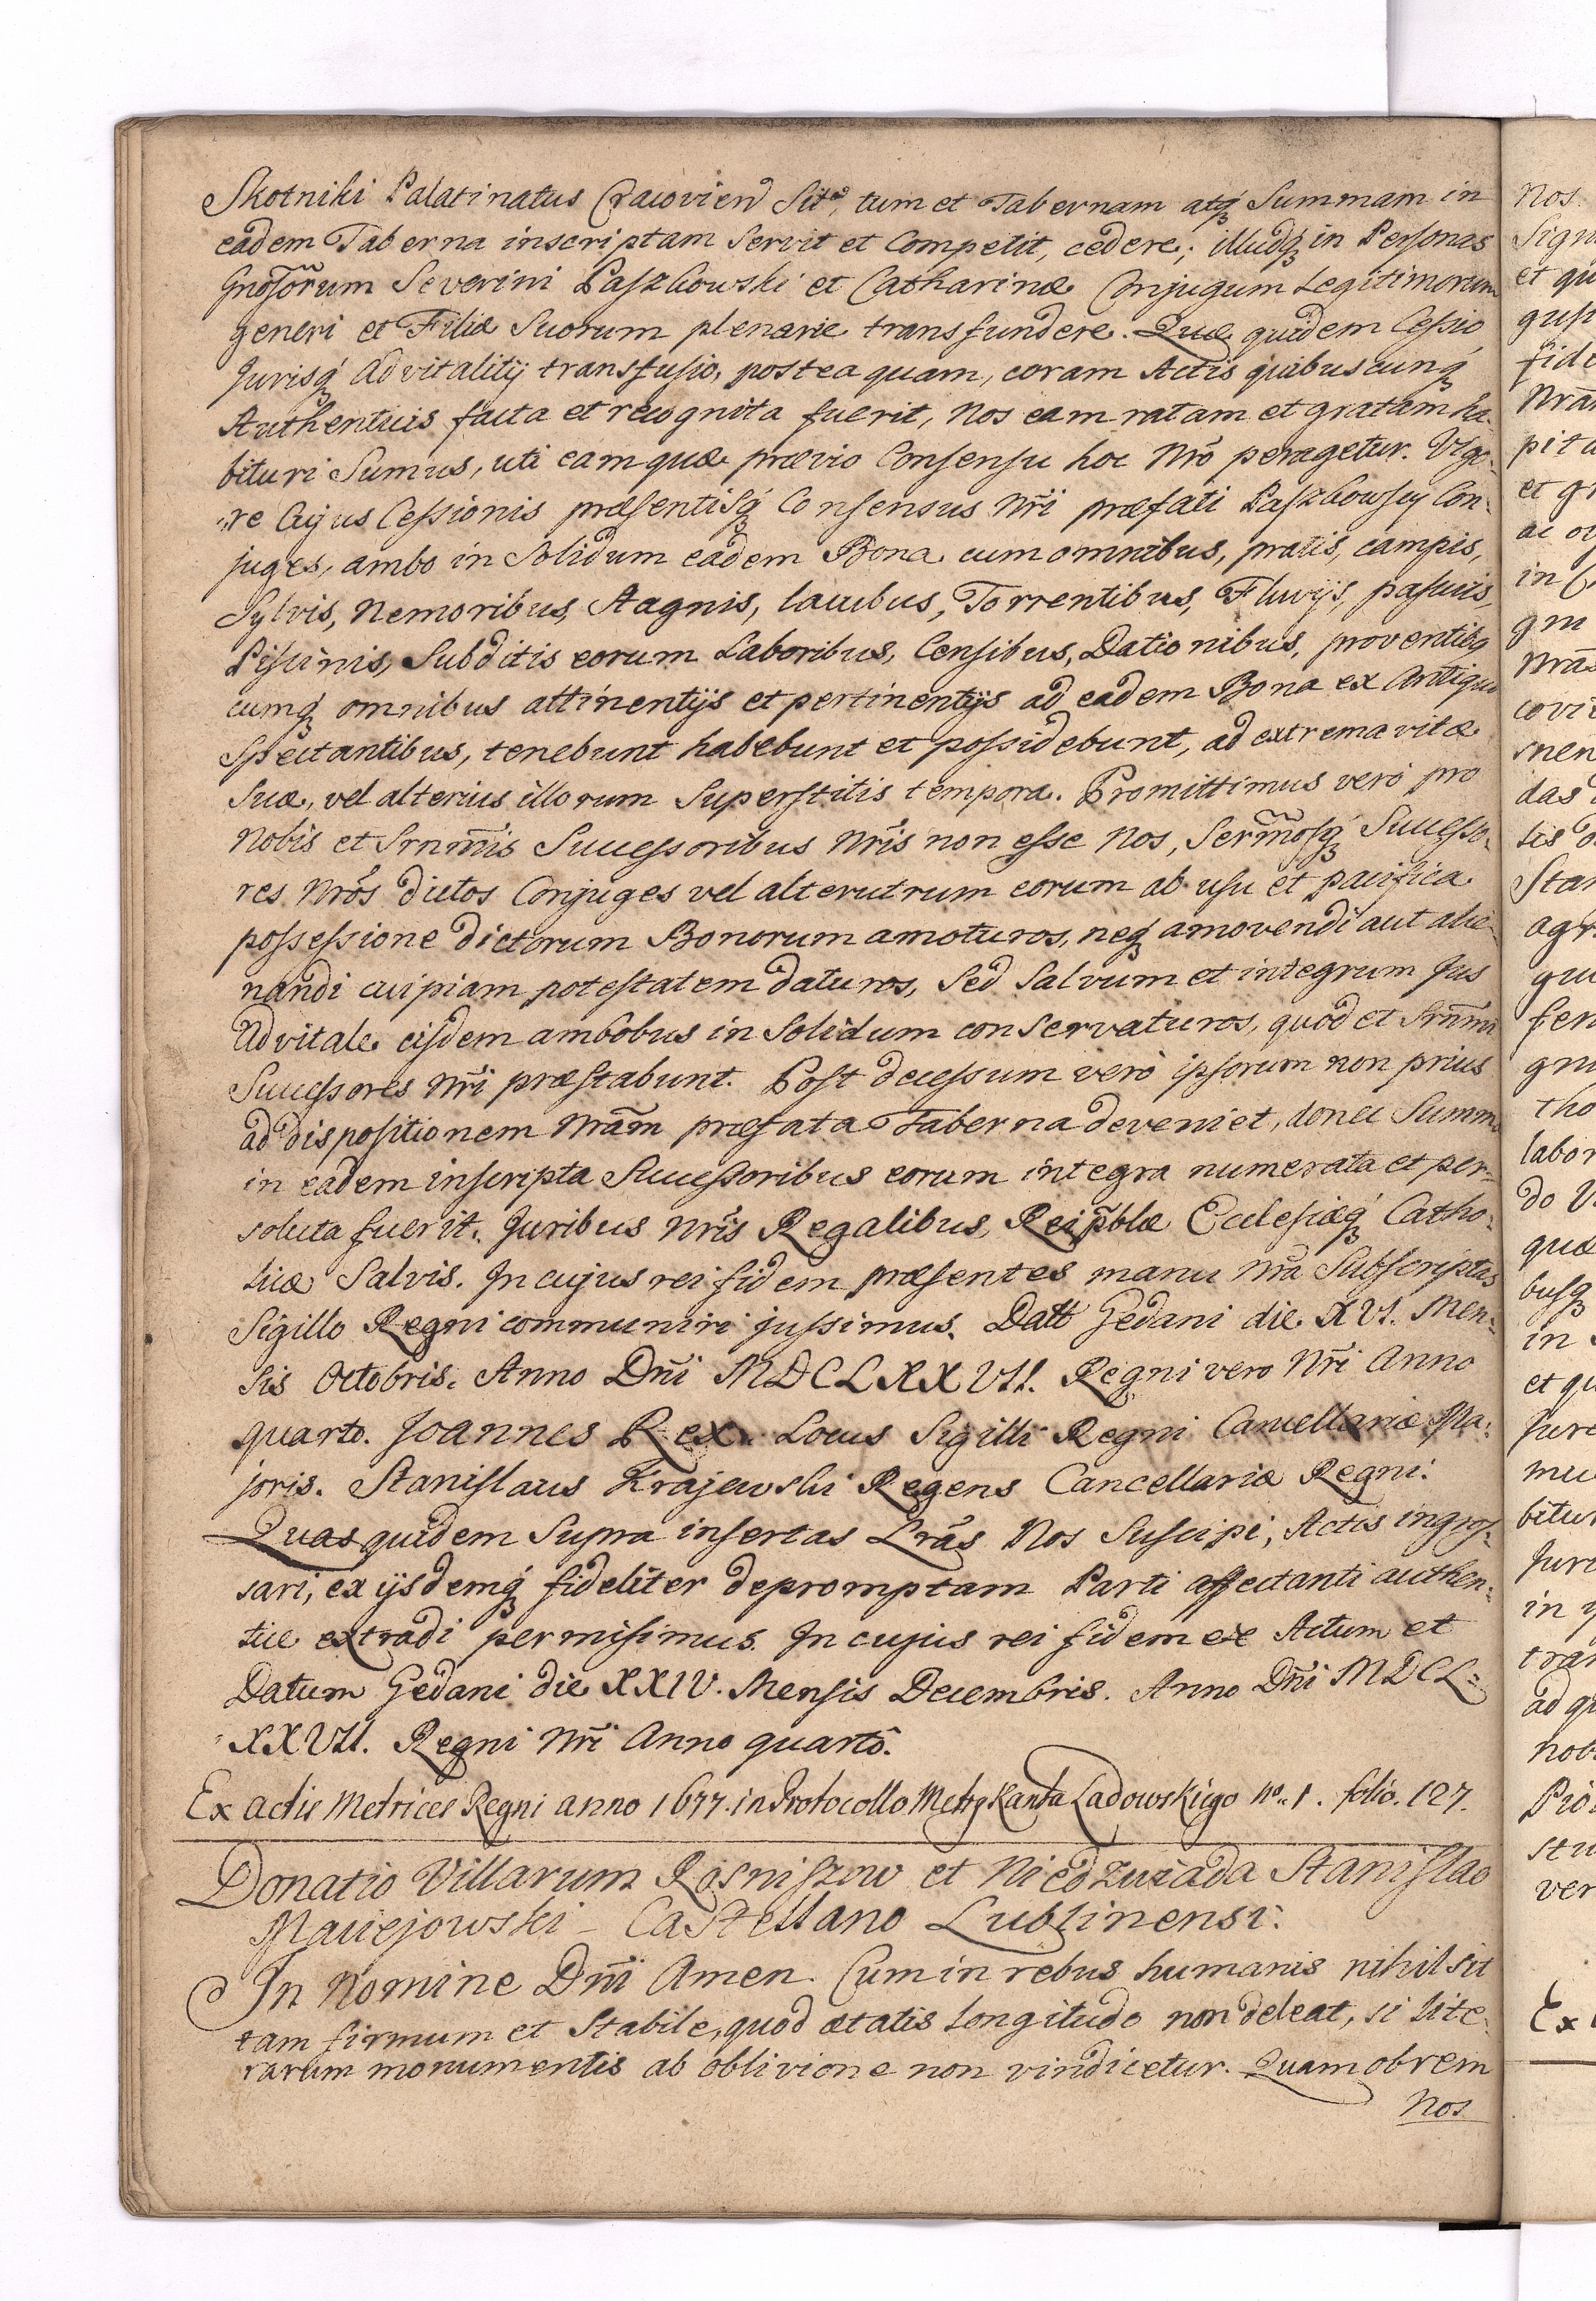 Skotniki Palatinatus Cracovien Sit, tum et Tabernam atq; Summam in
eadem Taberna inscriptam Servit et Competit, cedere; illudq; in Personas
Gnosorum Severini Paszkowski et Catharinæ Conjugum Legitimorum
generi et Filiæ Suorum plenarie transfundere. Quæ quidem Cessio
Jurisq; Advitalitij transfusio, postea quam, coram Actis quibuscunq;
Authenticis facta et recognita fuerit, Nos eam ratam et gratam ha-
bituri Sumus, uti eamquæ prævio Consensu hoc Nrõ peragetur. Vigo-
re Cujus Cessionis præsentisq; Consensus Nr̃i præfati Paszkowscy Con-
juges, ambo in Solidum eadem Bona cum omnibus, pratis, campis,
Sylvis, Nemoribus, Stagnis, lacubus, Torrentibus, Fluvijs, pascuis,
Piscinis, Subditis eorum Laboribus, Censibus, Dationibus, proventibq
cumq; omnibus attinentijs et pertinentijs ad eadem Bona ex Antiquo
Spectantibus, tenebunt habebunt et possidebunt, ad extrema vitæ
Suæ, vel alterius illorum Superstitis tempora. Promittimus verò pro
Nobis et Srnm̃is Successoribus Nrĩs non esse Nos, Serm̃osq; Successo-
res Nrõs dictos Conjuges vel alterutrum eorum ab usu et pacifica
possessione dictorum Bonorum amoturos, neq; amovendi aut alie-
nandi cuipiam potestatem daturos, Sed Salvum et integrum Jus
Advitale eisdem ambobus in Solidum conservaturos, quod et Srñmi
Successores Nr̃i præstabunt. Post decessum verò ipsorum non prius
ad dispositionem Nram̃ præfata Taberna deveniet, donec Summa
in eadem inscripta Successoribus eorum integra numerata et per-
soluta fuerit. Juribus Nrĩs Regalibus, Reip̃blæ Ecclesiæq; Catho-
licæ Salvis. In cujus rei fidem præsentes manu Nrã Subscriptas
Sigillo Regni communiri jussimus. Datt Gedani die XVI. Men-
sis Octobris. Anno Dñi MDCLXXVII. Regni vero Nr̃i Anno
quarto. Joannes Rex. Locus Sigilli Regni Cancellariæ Ma-
joris. Stanislaus Krajewski Regens Cancellariæ Regni.
Quas quidem Supra insertas Lrãs Nos Suscipi, Actis ingros-
sari, ex ijsdemq; fideliter depromptam Parti affectanti authen-
tice extradi permisimus. In cujus rei fidem &c Actum et
Datum Gedani die XXIV. Mensis Decembris. Anno Dñi MDCL-
XXVII. Regni Nr̃i Anno quartô.
Ex actis Metrices Regni anno 1677. in Protocollo Metry Kanta Ladowskiego No. 1. folio. 127.
Donatio Villarum Rosniszow et Niedzwiada Stanislao
Maciejowski Castellano Lublinensi.
In Nomine Dñi Amen. Cum in rebus humanis nihil sit
tam firmum et Stabile, quod ætatis longitudo non deleat, si lite-
rarum monumentis ab oblivione non vindicetur. Quamobrem
Nos